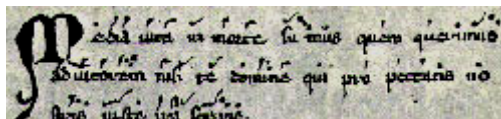 Media vita in morte sumus quem querimus
adiutorem nisi te domine qui pro peccatis no
stris iuste